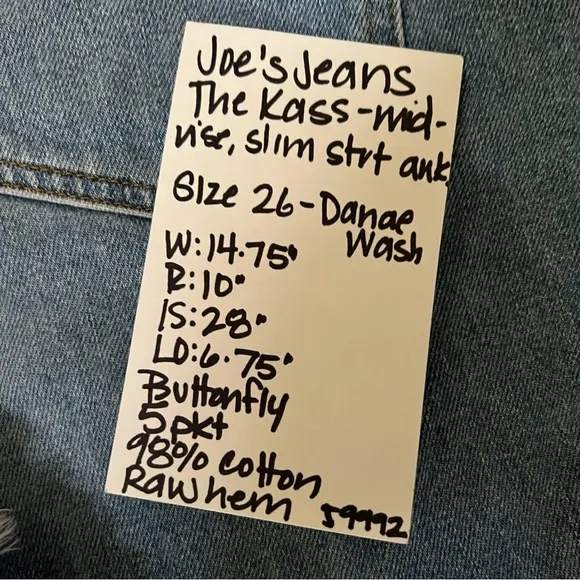 Joe's Jeans
The Kass-mid-
rise, slim strt ank
Size 26-Danae
Wash
W: 14.75"
R: 10"
IS: 28"
LO: 6.75"
Buttonfly
5 pkt
98% cotton
Raw hem
59992